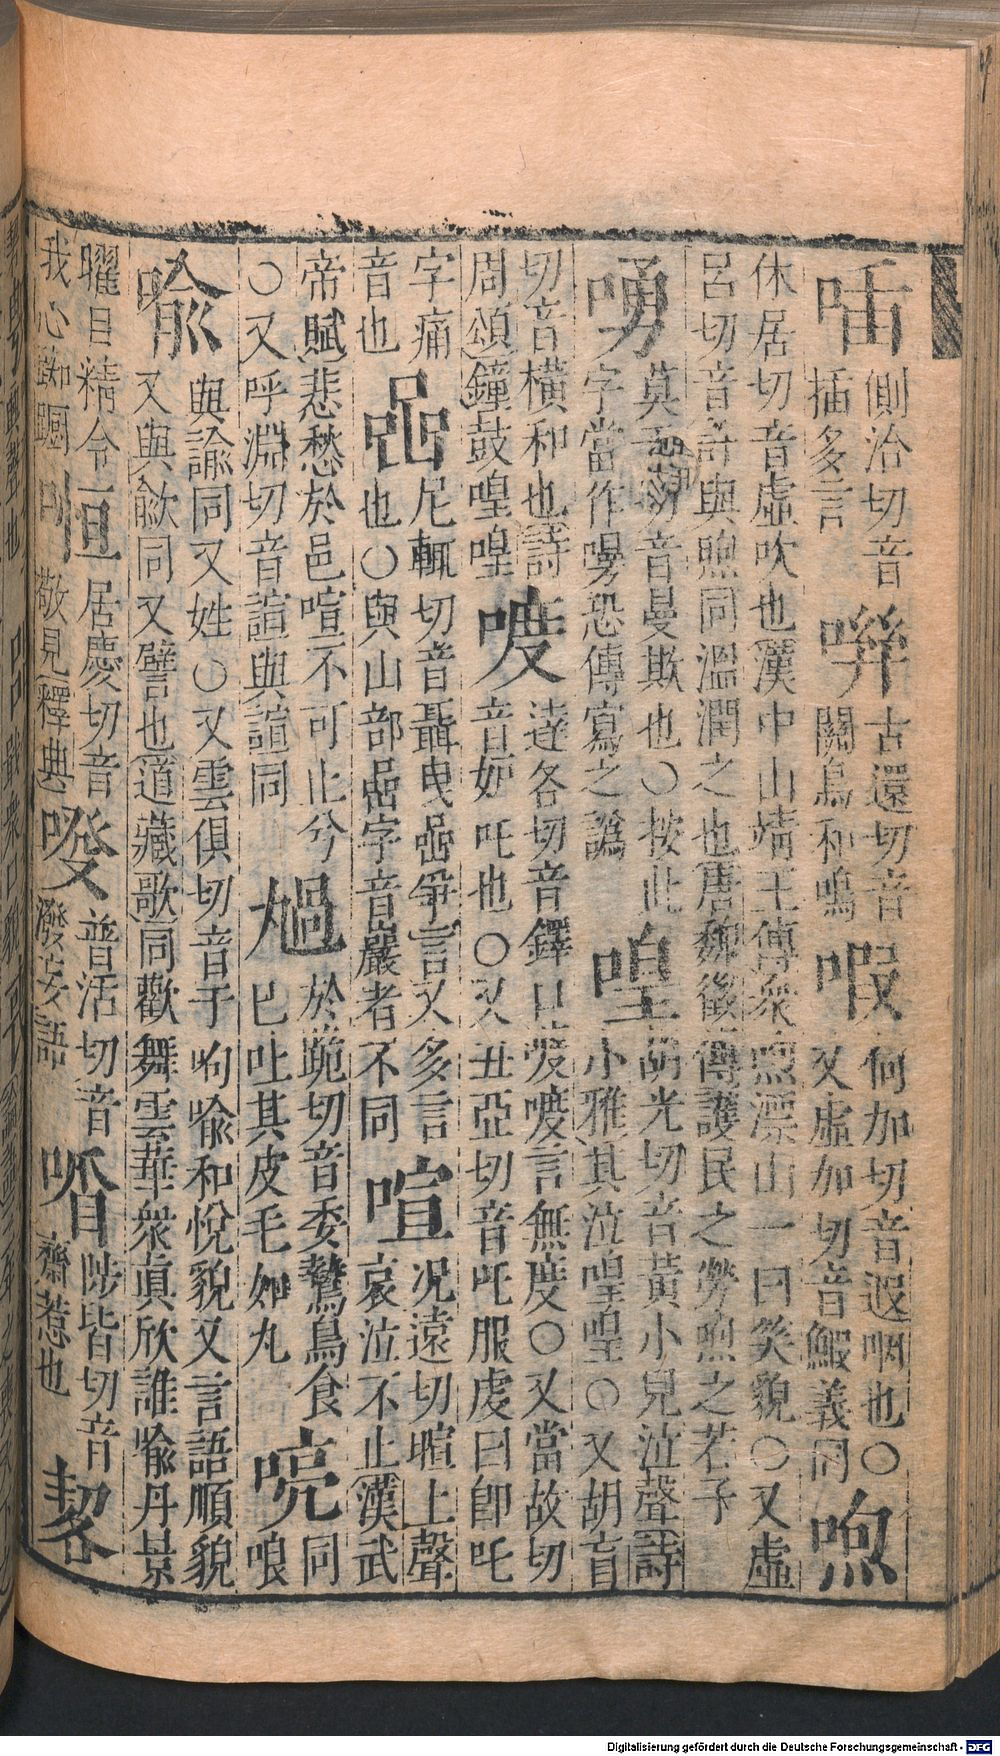 喢
側洽切音
插多言
古還切音
關鳥和鳴
㗇
何加切音遐呬也○
又虛加切音鰕義同
喣
休居切音虛吹也漢中山靖王傳衆喣漂山一曰笑貌○又虛
呂切音許與煦同溫潤之也唐魏徵傳護民之勞喣之若子
切音曼欺也○按此
字當作恐傳寫之譌
喤
胡光切音黃小兒泣聲詩
小雅其泣喤喤○又胡盲
切音橫和也詩
周頌鐘鼓喤喤
喥
達各切音鐸口喥言無度○又當故切
音妒吒也○又丑亞切音吒服虔曰卽吒
字痛
音也
喦
尼輒切音聶曳喦爭言又多言
也○與山部嵒字音巖者不同
喧
况遠切暄上聲
哀泣不止漢武
帝賦悲愁於邑喧不可止兮
○又呼淵切音諠與諠同
於跪切音委鷙鳥食
已吐其皮毛如丸
喨
同
哴
喩
與諭同又姓○又雲俱切音于呴喩和悅貌又言語順貌
又與歈同又譬也道藏歌同歡舞雲華衆眞欣誰喩丹景
曜目精令
我心踟躅
居慶切音
敬見釋典
普活切音
潑妄語
陟皆切音
齋惹也